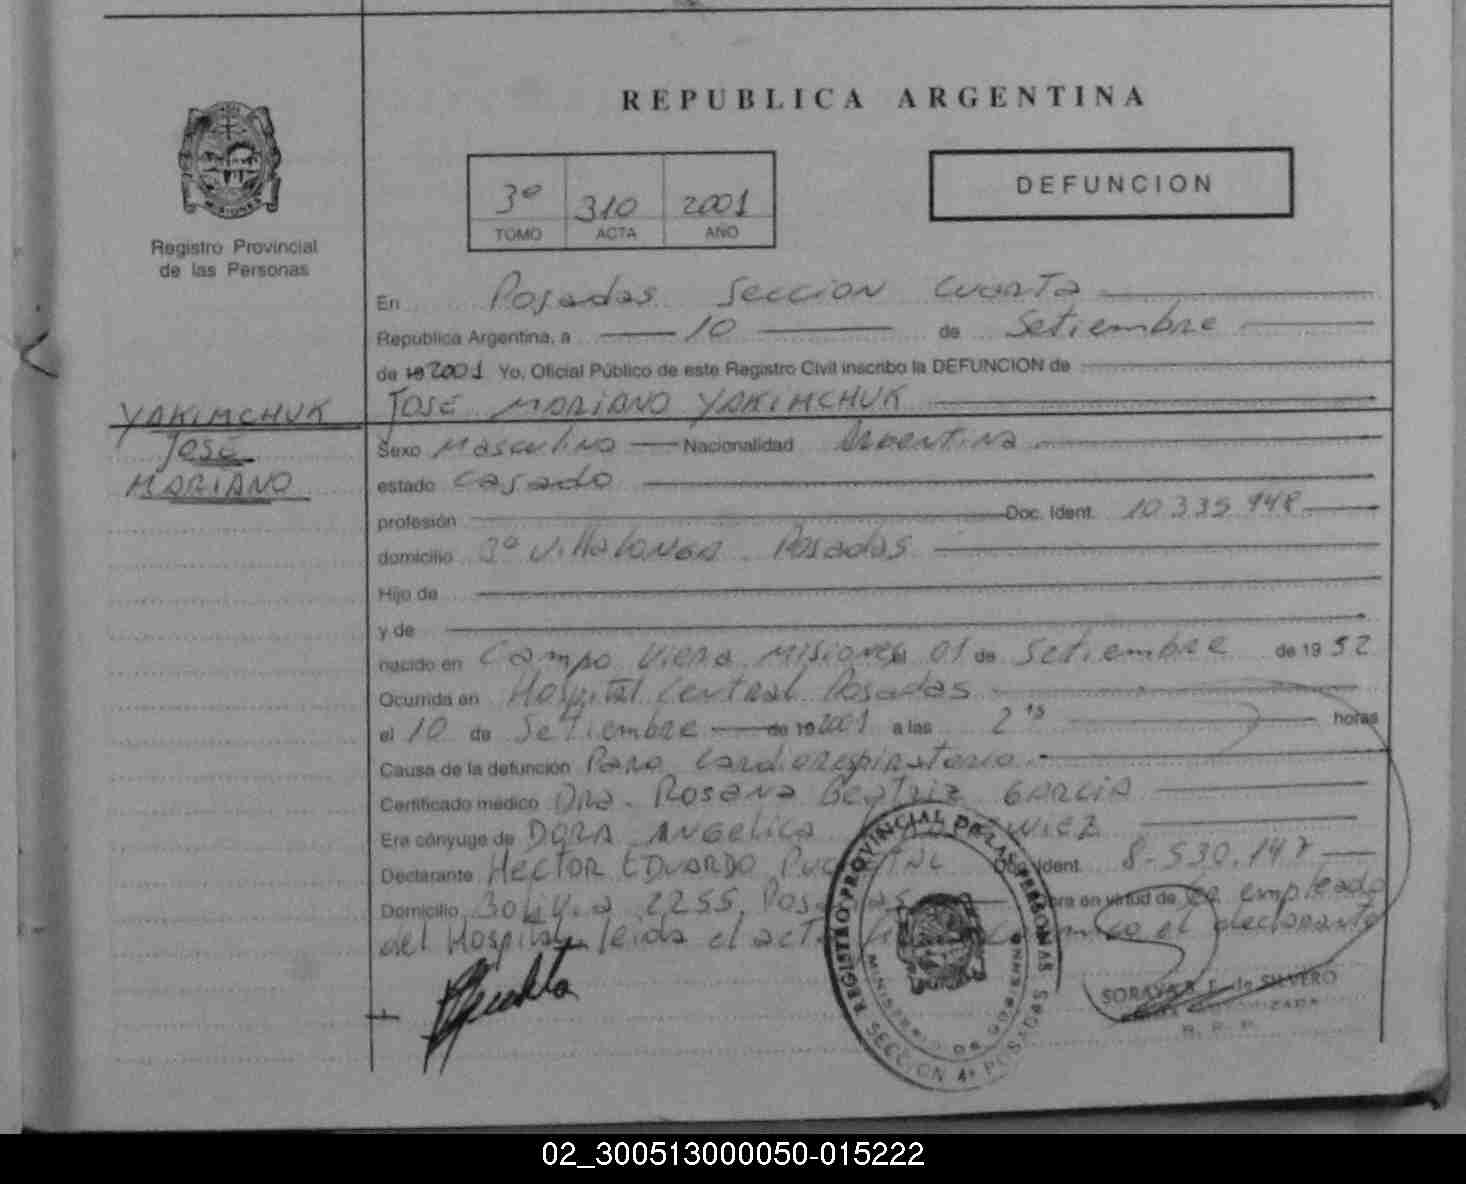 REPUBLICA ARGENTINA
MISIONES
Registro Provincial
de las Personas
3º 310 2001
TOMO ACTA AÑO
DEFUNCION
En Posadas Seccion Cuarta
Republica Argentina, a 10 de Setiembre
de 19 2001 Yo, Oficial Público de este Registro Civil inscribo la DEFUNCION de
YAKIMCHUK
JOSÉ
MARIANO
JOSE MARIANO YAKIMCHUK
Sexo Masculino Nacionalidad Argentina
estado casado
profesión Doc. Ident. 10.335.948
domicilio 3º Villalonga Posadas
Hijo de
y de
nacido en Campo Viera Misiones el 01 de Setiembre de 19 52
Ocurrida en Hospital Central Posadas
el 10 de Setiembre de 19 2001 a las 2 15 horas
Causa de la defunción Paro Cardiorespiratorio
Certificado médico Dra. Rosana Beatriz GARCIA
Era cónyuge de DORA ANGELICA
Declarante HECTOR EDUARDO Doc. Ident. 8.530.147
Domicilio Bolivia 2255 Posadas en virtud de ser empleado
del Hospital leida el acta el declarante
REGISTRO PROVINCIAL DE LAS PERSONAS
MINISTERIO DE GOBIERNO
SECCION 4ª POSADAS
SORAYA de SILVERO
R. P. P.
02_300513000050-015222